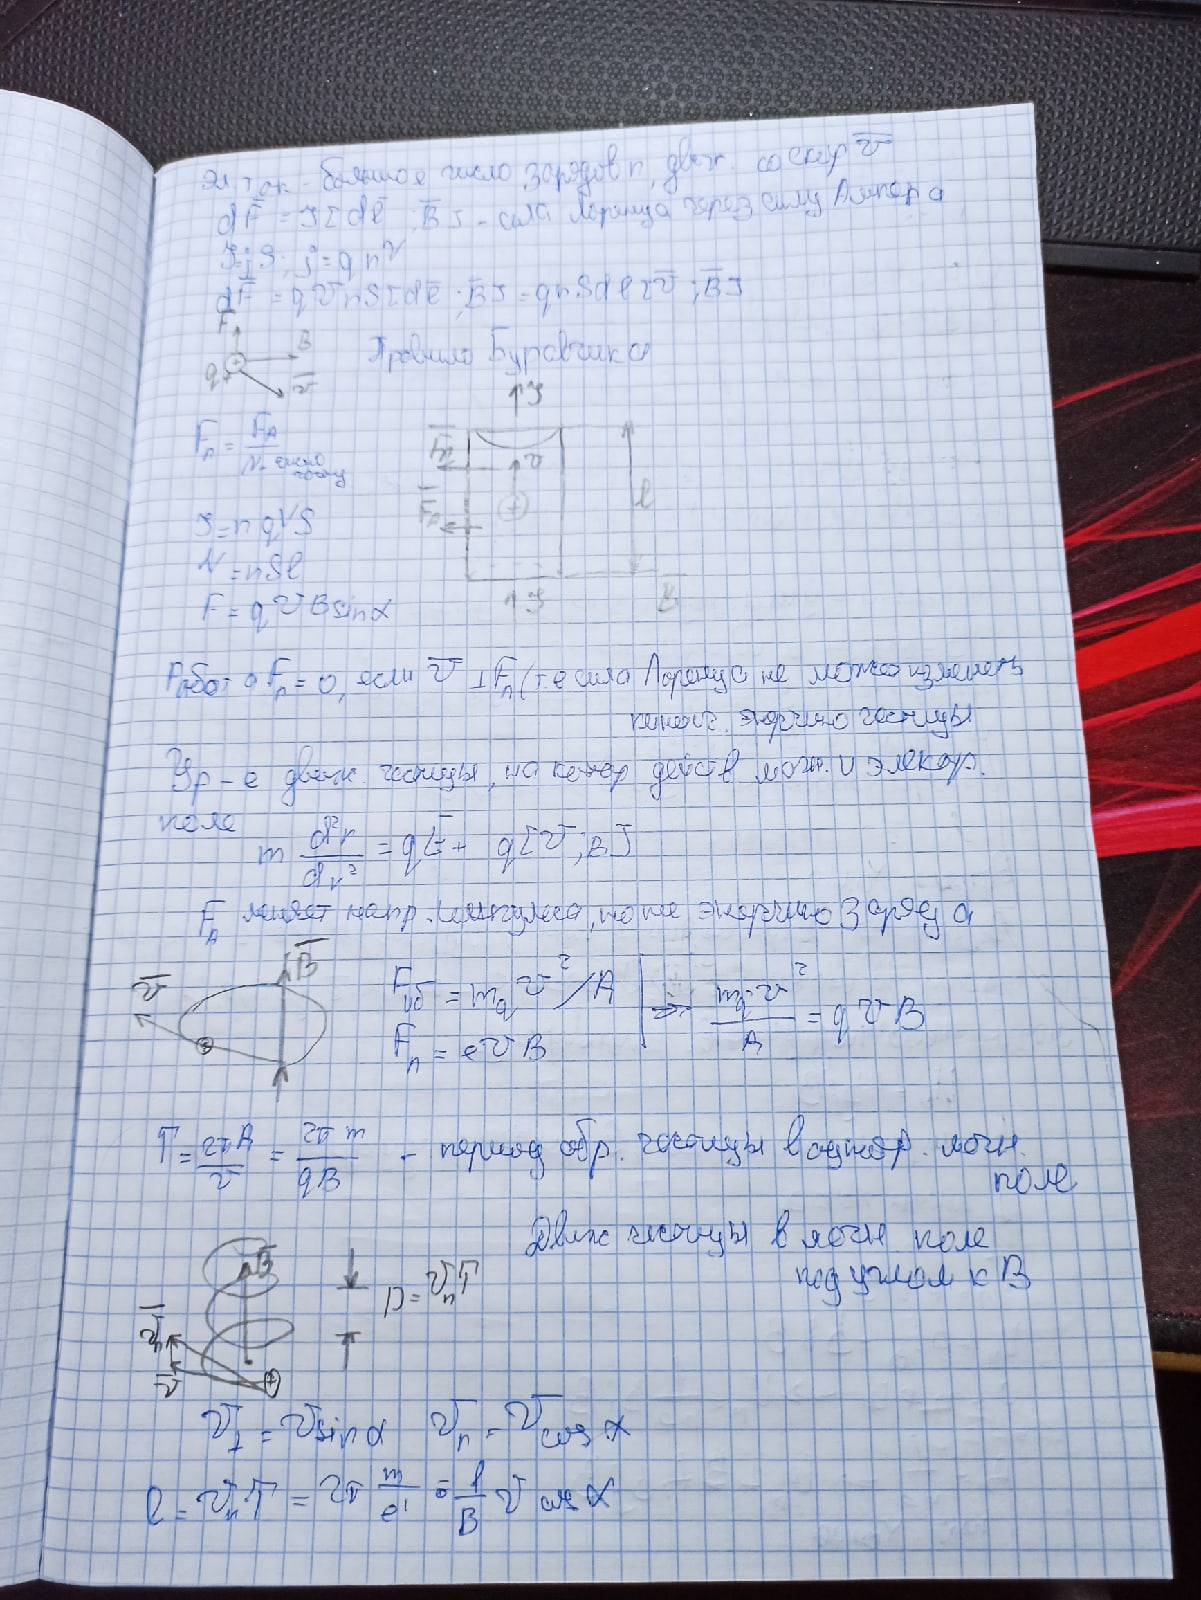 Эл. ток - большое число зарядов n, движ. со скор v̅
dF̅ = I[dl̅; B̅] - сила Лоренца через силу Ампера
I=jS; j=qnv
dF̅ = qvnS[dl̅; B̅] = qnSdl[v̅; B̅]
F
B̅
q+
v̅
Правило Буравчика
I
Fл = FA / N - число частиц
F̅л
v
l
F̅A
I = nqVS
N = nSl
F = qvBsinα
I
B̅
Работа Fл = 0, если v̅ ⊥ F̅л (т.е сила Лоренца не может изменить
кинет. энергию частицы
Ур-е движ. частицы, на котор действ магн. и электр.
поле
m d²r / dr² = qE̅ + q[v̅; B̅]
Fл меняет напр. импульса, но не энергию заряда
B̅
v̅
Fцб = mqv²/R
mq·v² / R = qvB
Fл = evB
T = 2πR / v = 2πm / qB - период обр. частицы в однор. магн.
поле
Движ частицы в магн поле
под углом к B
B̅
D = vпT
v̅п
v̅
v⊥ = vsinα vп = v cosα
l = vпT = 2π m / e' · 1 / B v cosα